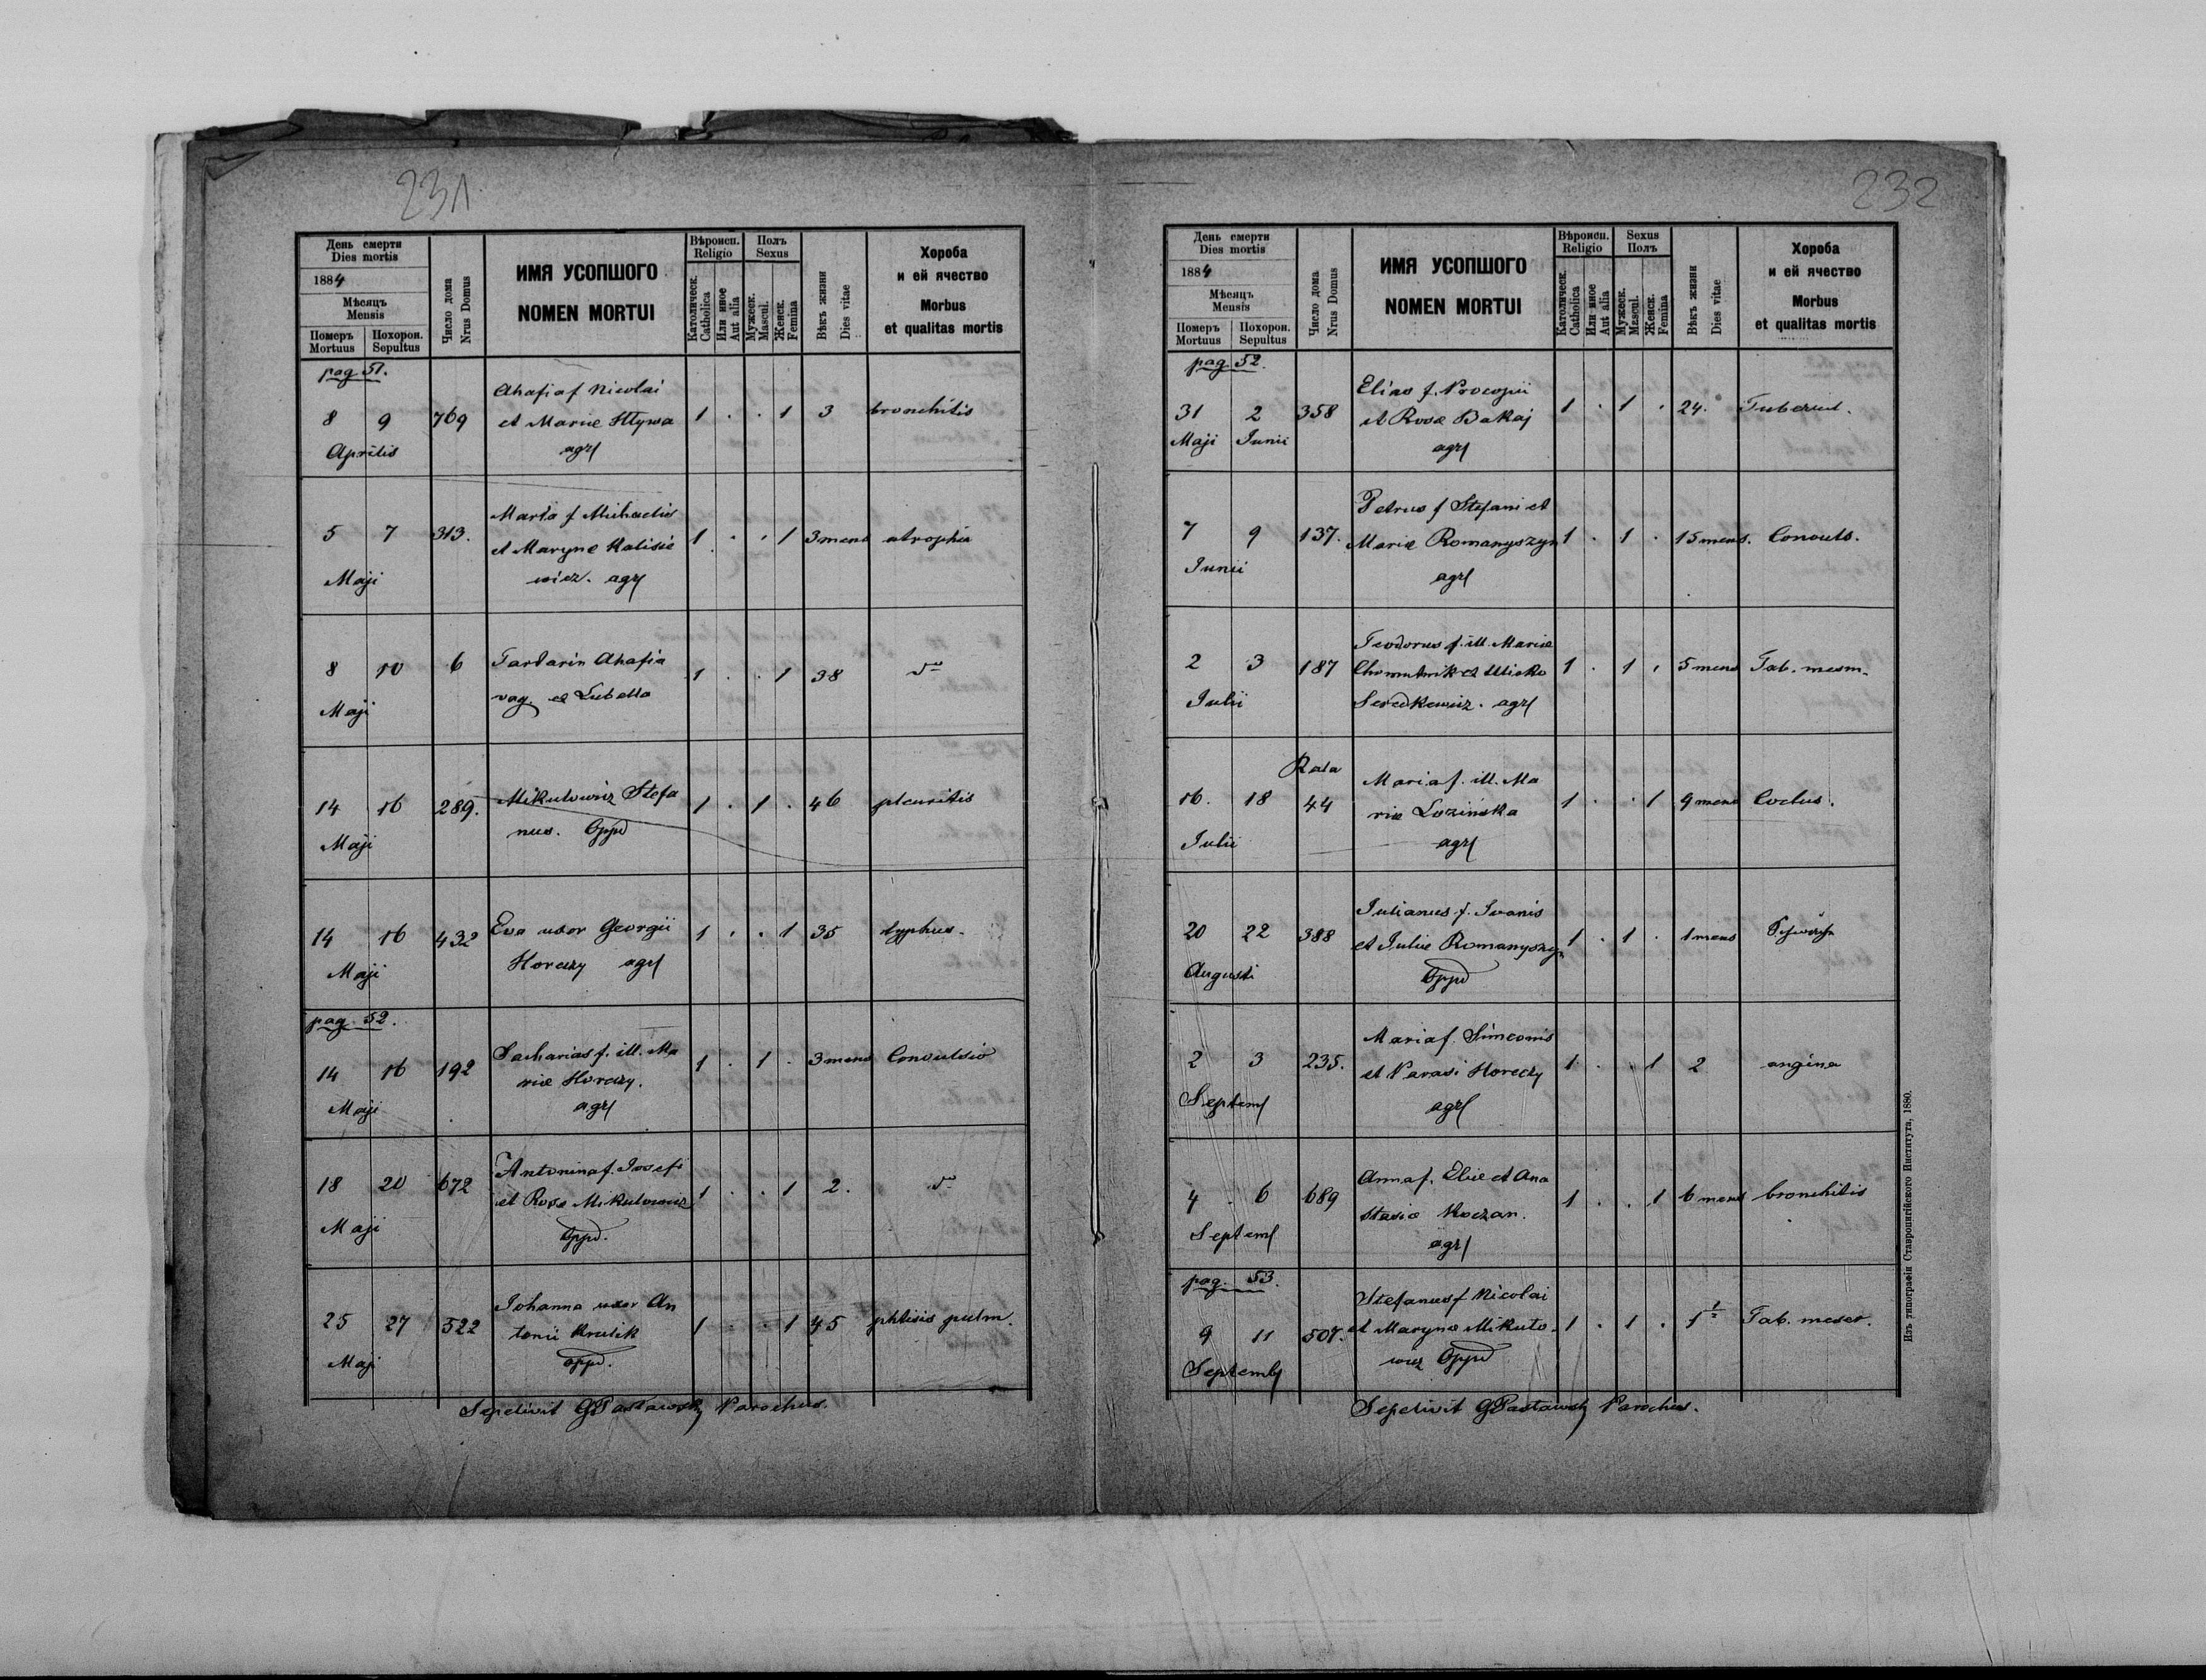 231
День смерти
Dies mortis
1884
Мѣсяцъ
Mensis
Померъ
Mortuus
Похорон.
Sepultus
Число дома
Nrus Domus
ИМЯ УСОПШОГО
NOMEN MORTUI
Вѣроисп.
Religio
Католическ.
Catholica
Или иное
Aut alia
Полъ
Sexus
Мужеск.
Mascul.
Женск.
Femina
Вѣкъ жизни
Dies vitae
Хороба
и ей ячество
Morbus
et qualitas mortis
pag 51.
Ahafia f Nicolai
8 9 769 et Mariæ Hlywa 1 . . 1 3 bronchitis
Aprilis agrl
Maria f Michaelis
5 7 313. et Maryne Kalisie 1 . . 1 3 mens atrophia
Maji wicz. agrl
8 10 6 Ahafia 1 . . 1 38
vag. ex Lubella
Maji
14 16 289. Mikulowicz Stefa 1 . 1 . 46 pleuritis
nus. Oppd
Maji
14 16 432 Eva uxor Georgii 1 . . 1 35 typhus.
Maji Horeczy agrl
pag. 52.
14 16 192 Zacharias f. ill. Ma 1 . 1 . 3 mens Convulsio
riæ Horeczy.
Maji agrl
Antonina f. Josefi
18 20 672 et Rosæ Mikulowicz 1 . . 1 2.
Maji Oppd.
Johanna uxor An
25 27 522 tonii Krulik 1 . . 1 45 phtisis pulm.
Maji oppd.
Sepelivit G Pasławsky Parochus.
232
День смерти
Dies mortis
1884
Мѣсяцъ
Mensis
Померъ
Mortuus
Похорон.
Sepultus
Число дома
Nrus Domus
ИМЯ УСОПШОГО
NOMEN MORTUI
Вѣроисп.
Religio
Католическ.
Catholica
Или иное
Aut alia
Sexus
Полъ
Мужеск.
Mascul.
Женск.
Femina
Вѣкъ жизни
Dies vitae
Хороба
и ей ячество
Morbus
et qualitas mortis
pag 52.
Elias f. Procopii
31 2 358 et Rosæ Bakaj 1 . 1 . 24. Tubercul.
Maji Junii agrl
Petrus f Stefani et
7 9 137. Mariæ Romanyszyn 1 . 1 . 15 mens. Convuls.
Junii agrl
Teodorus f. ill. Mariæ
2 3 187 1 . 1 . 5 mens Tab.
Julii agrl
Rata
16. 18 44 Maria f. ill. Ma 1 . . 1 9 mens
riæ Lozińska
Julii agrl
Julianus f. Ivanis
20 22 388 et Juliæ Romanyszyn 1 . 1 . 1 mens
Augusti Oppd
Maria f. Simeonis
2 3 235. et Parasi Horeczy 1 . . 1 2 angina
Septeml agrl
Anna f. Eliæ et Ana
4 . 6 689 stasiæ Koczan. 1 . . 1 6 mens bronchitis
Septeml agrl
pag. 53.
Stefanus f Nicolai
9 11 507. et Maryne Mikulo- 1 . 1 . 1½ Tab. meser.
Septembl wicz Oppd
Sepelivit G Pasławsky Parochus.
Изъ типографіи Ставропигійского Института, 1880.